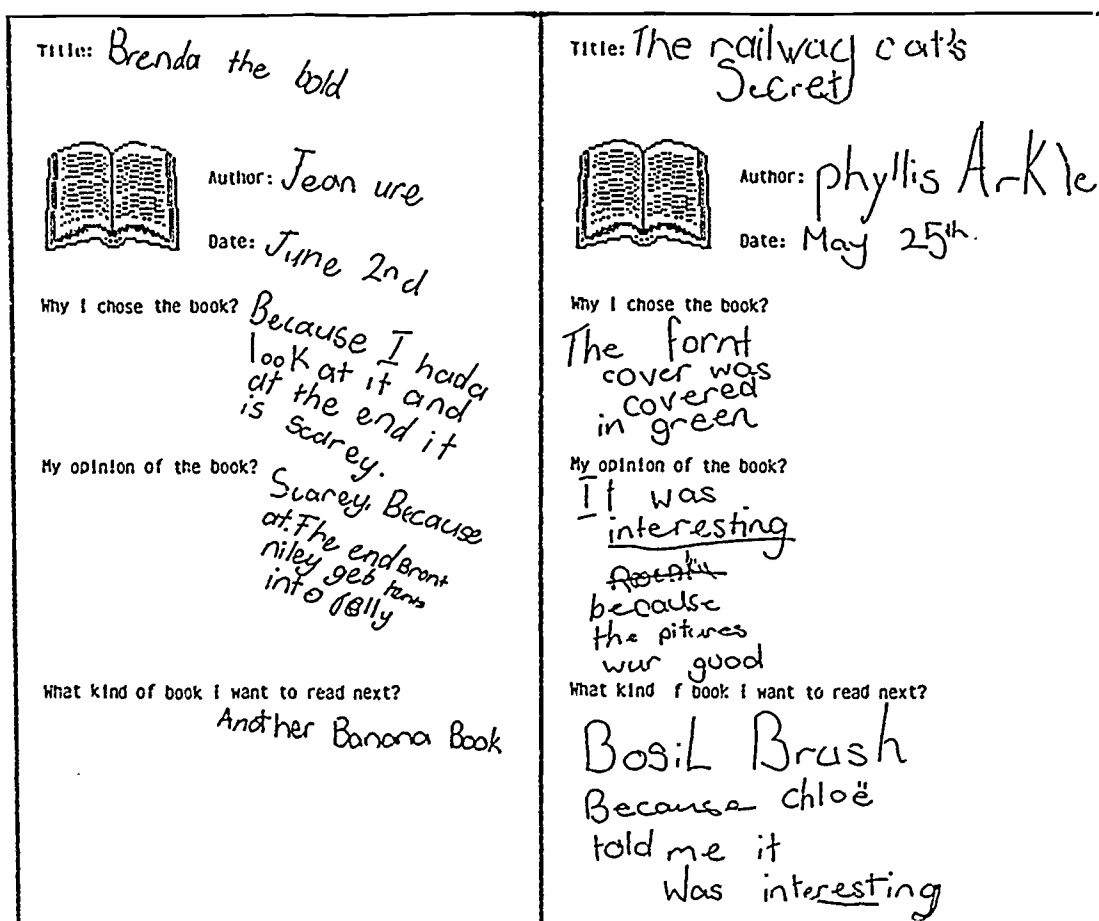 Title: Brenda the bold
Author: Jean ure
Date: June 2nd
Why I chose the book? Because I hada
look at it and
at the end it
is scarey.
My opinion of the book? Scarey. Because
at. The end Bront
niley gets
into
What kind of book I want to read next?
Another Banana Book
Title: The railway cat's
Secret
Author: phyllis Arkle
Date: May 25th.
Why I chose the book?
The fornt
cover was
covered
in green
My opinion of the book?
It was
interesting
because
the pitures
wur guod
What kind f book I want to read next?
Bosil Brush
Because chloë
told me it
was interesting